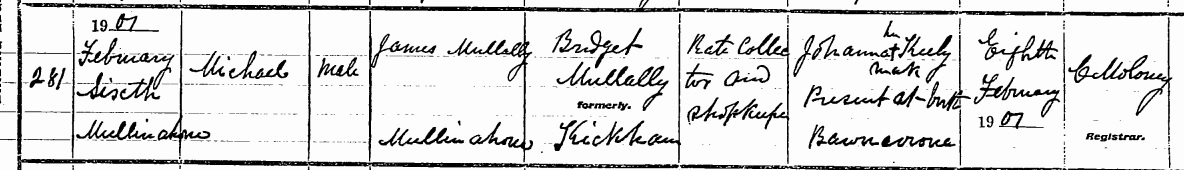 281
1901
February
Sixth
Mullinahone
Michael
Male
James Mullally
Mullinahone
Bridget
Mullally
formerly.
Kickham
Rate Collec
tor and
shopkeeper
Johanna
her
mark
Present at birth
Eighth
February
1901
C Moloney
Registrar.